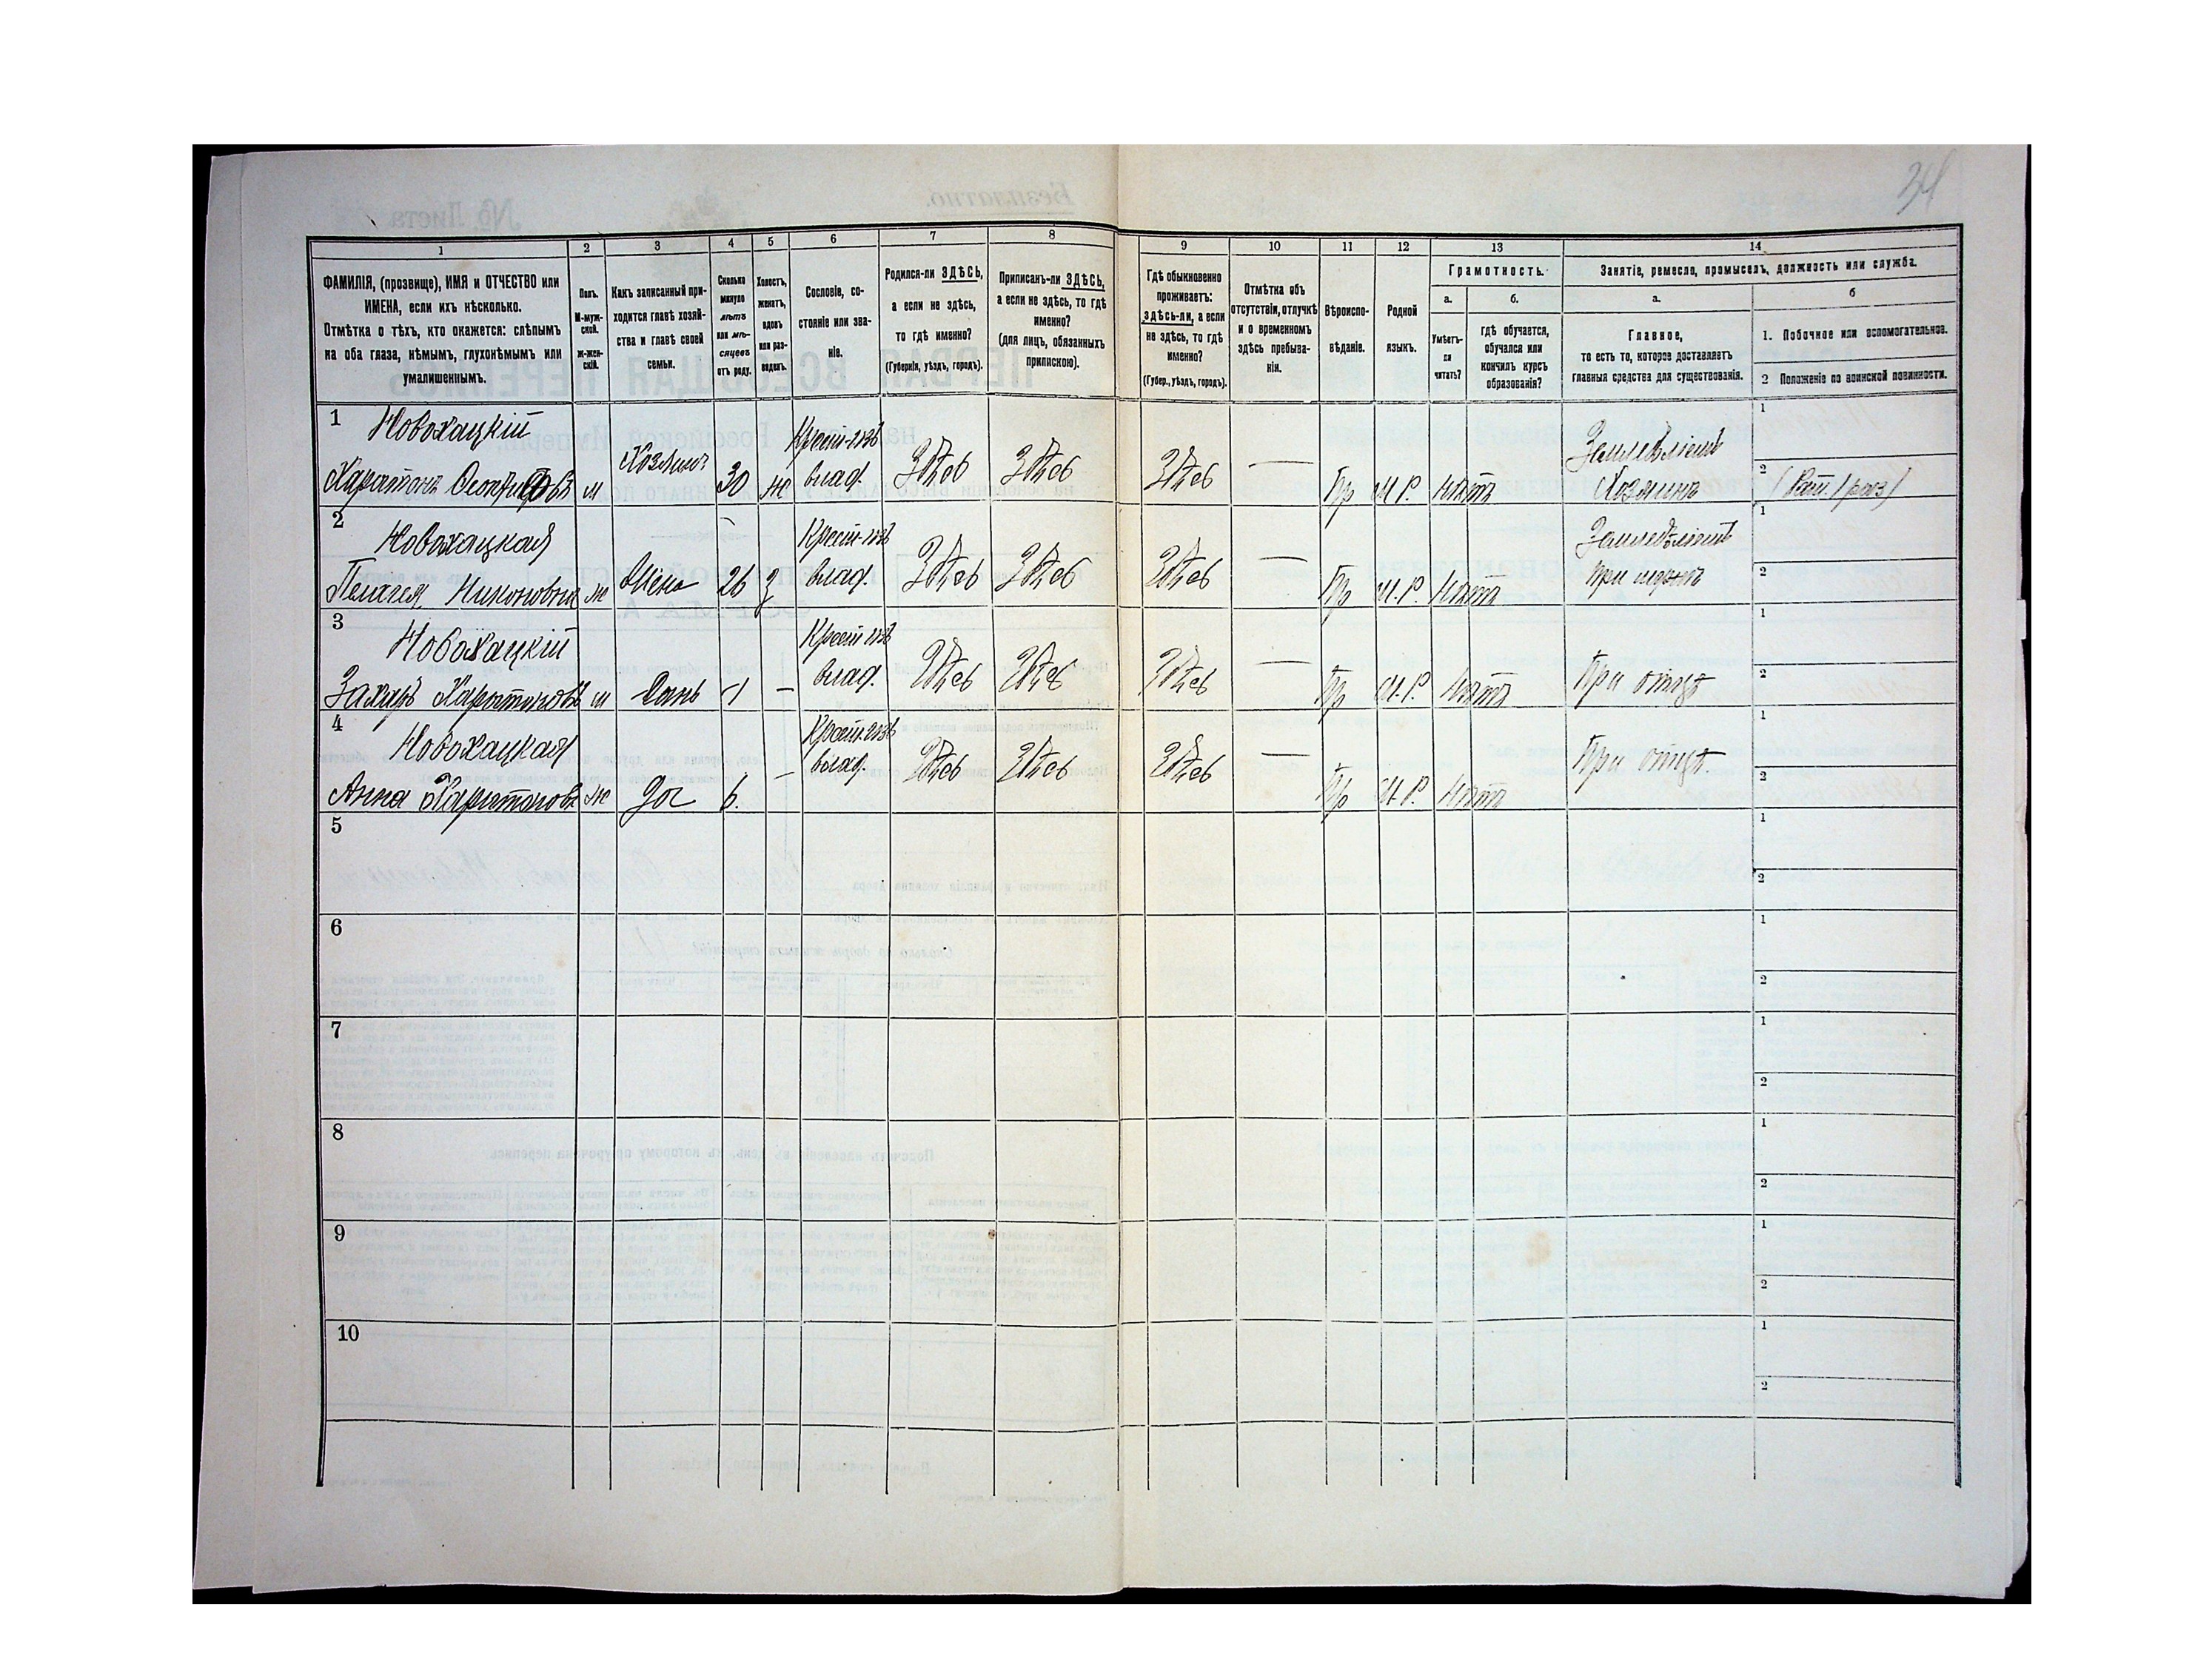 34
1
2
3
4
5
6
7
8
9
10
11
12
13
14
ФАМИЛІЯ, (прозвище), ИМЯ и ОТЧЕСТВО или
ИМЕНА, если ихъ нѣсколько.
Отмѣтка о тѣхъ, кто окажется: слѣпымъ
на оба глаза, нѣмымъ, глухонѣмымъ или
умалишеннымъ.
Полъ.
М-муж-
ской.
ж-жен-
скій.
Какъ записанный при-
ходится главѣ хозяй-
ства и главѣ своей
семьи.
Сколько
минуло
лѣтъ
или мѣ-
сяцевъ
отъ роду.
Холостъ,
женатъ,
вдовъ
или раз-
веденъ.
Сословіе, со-
стояніе или зва-
ніе.
Родился-ли ЗДѢСЬ,
а если не здѣсь,
то гдѣ именно?
(Губернія, уѣздъ, городъ).
Приписанъ-ли ЗДѢСЬ,
а если не здѣсь, то гдѣ
именно?
(для лицъ, обязанныхъ
припискою).
Гдѣ обыкновенно
проживаетъ:
здѣсь-ли, а если
не здѣсь, то гдѣ
именно?
(Губер., уѣздъ, городъ).
Отмѣтка объ
отсутствіи, отлучкѣ
и о временномъ
здѣсь пребыва-
ніи.
Вѣроиспо-
вѣданіе.
Родной
языкъ.
Грамотность.
а.
б.
Умѣетъ-
ли
читать?
гдѣ обучается,
обучался или
кончилъ курсъ
образованія?
Занятіе, ремесло, промыселъ, должность или служба.
а.
б
Главное,
то есть то, которое доставляетъ
главныя средства для существованія.
1. Побочное или вспомогательное.
2 Положеніе по воинской повинности.
1 Новохацкій
Харитонъ м Хозяинъ 30 ж Крест-изъ влад. Здѣсь Здѣсь Здѣсь — Пр М.Р. нѣтъ Хозяинъ 1 2
2 Новохацкая
Пелагея Никоновна ж Жена 26 З Крест-изъ влад. Здѣсь Здѣсь Здѣсь — Пр М.Р. Нѣтъ при мужѣ 1 2
3 Новохацкій
Захаръ Харитоновъ м Сынъ 1 — Крест-изъ влад. Здѣсь Здѣсь Здѣсь — Пр М.Р. Нѣтъ При отцѣ 1 2
4 Новохацкая
Анна Харитонов ж доч 6. — Крест-изъ влад. Здѣсь Здѣсь Здѣсь — Пр М.Р. Нѣтъ При отцѣ. 1 2
5 1 2
6 1 2
7 1 2
8 1 2
9 1 2
10 1 2